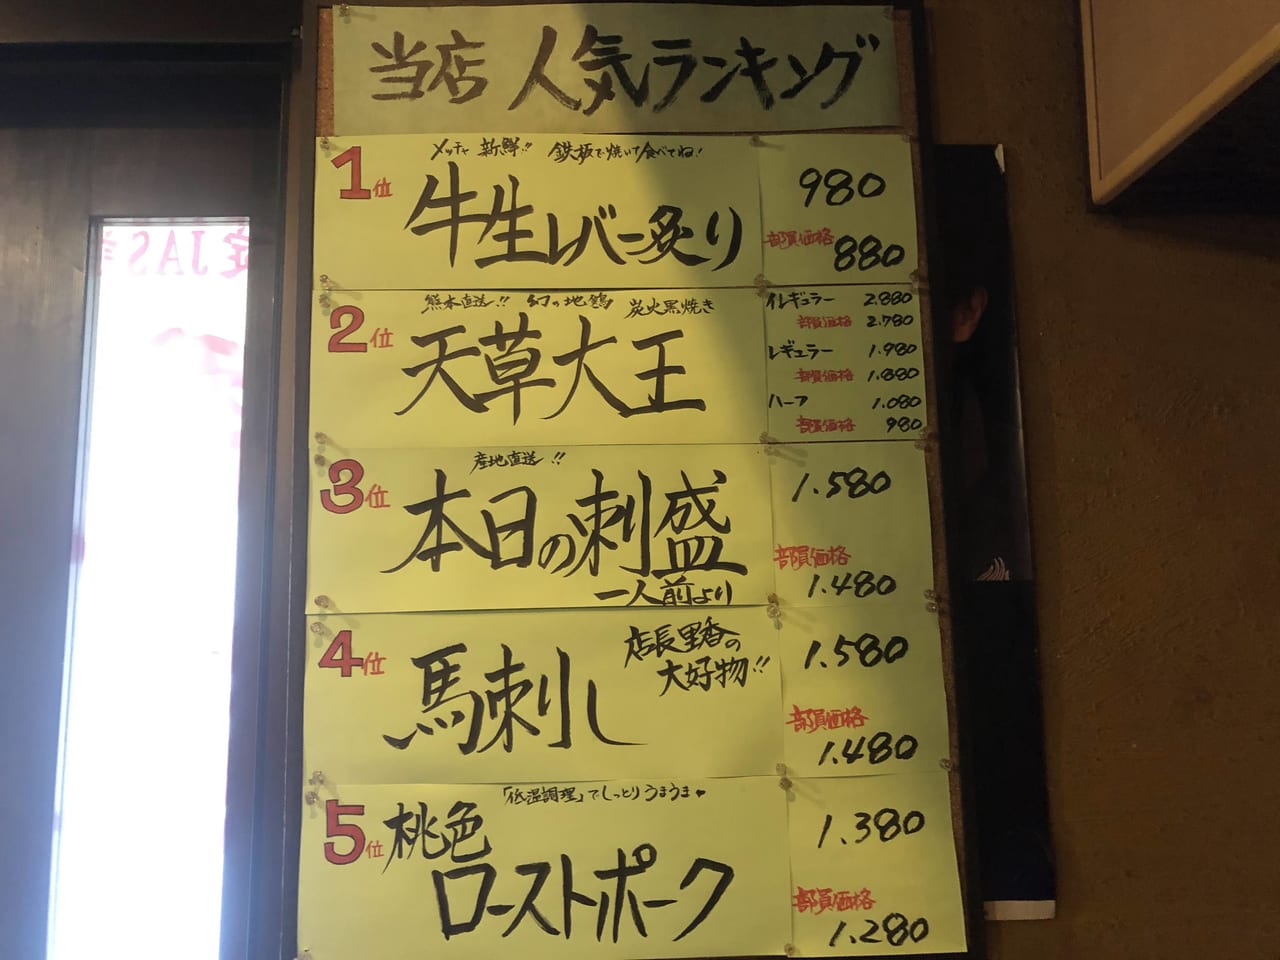 当店 人気ランキング
1位
メッチャ 新鮮!! 鉄板で焼いて食べてね!
牛生レバー炙り
980
部員価格
880
2位
熊本直送!! 幻の地鶏 炭火黒焼き
天草大王
イレギュラー 2.880
部員価格 2.780
レギュラー 1.980
部員価格 1.880
ハーフ 1.080
部員価格 980
3位
産地直送!!
本日の刺盛
一人前より
1.580
部員価格
1.480
4位
馬刺し
店長里香の
大好物!!
1.580
部員価格
1.480
5位
「低温調理」でしっとりうまうま♥
桃色
ローストポーク
1.380
部員価格
1.280
JAS